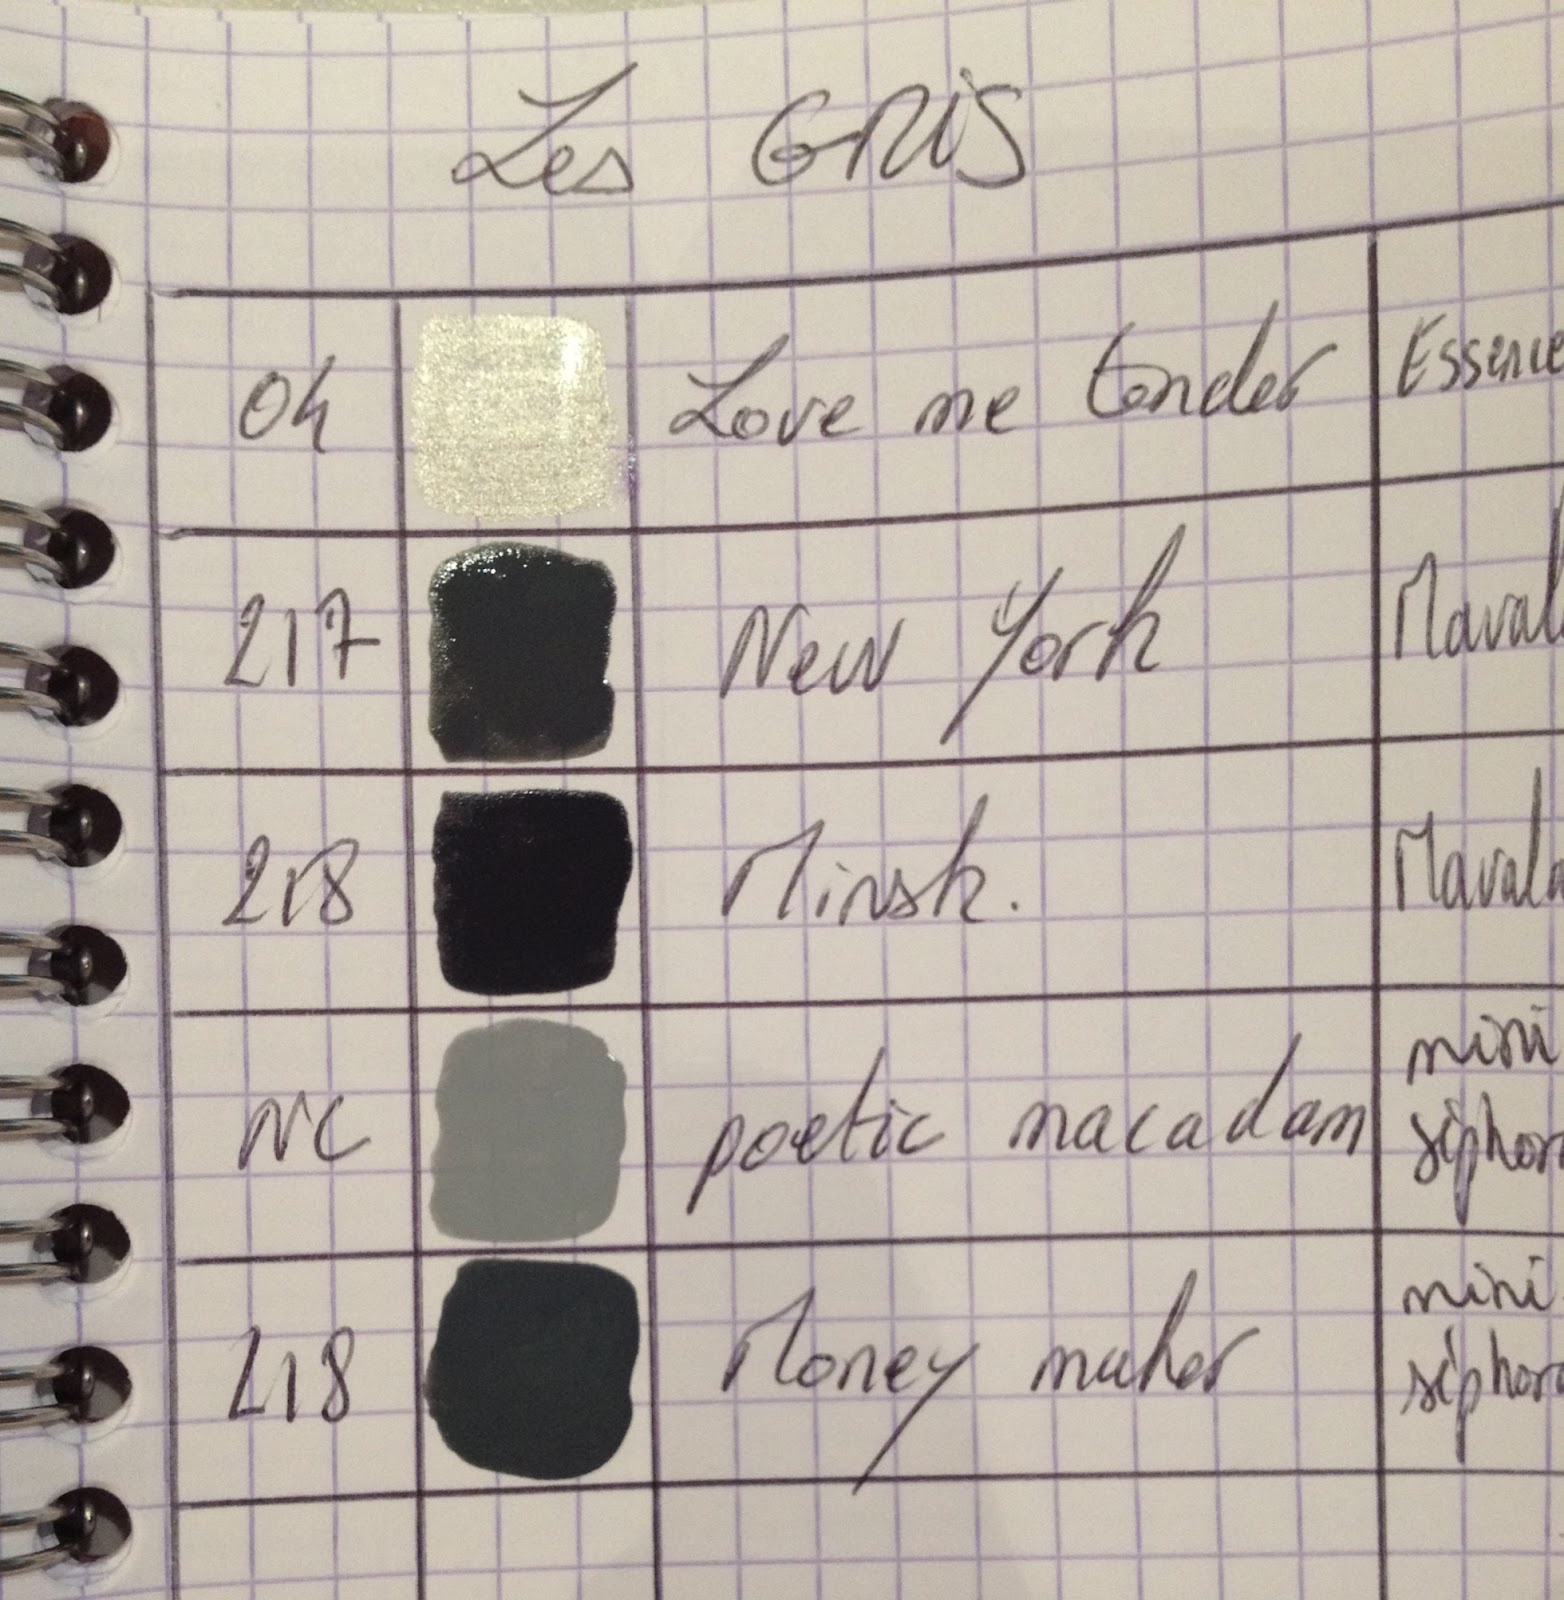 Les GRIS
04 Love me tender Essence
217 New York Mavala
218 Minsk. Mavala
NC poetic macadam mini
siphora
218 Money maker mini
siphora